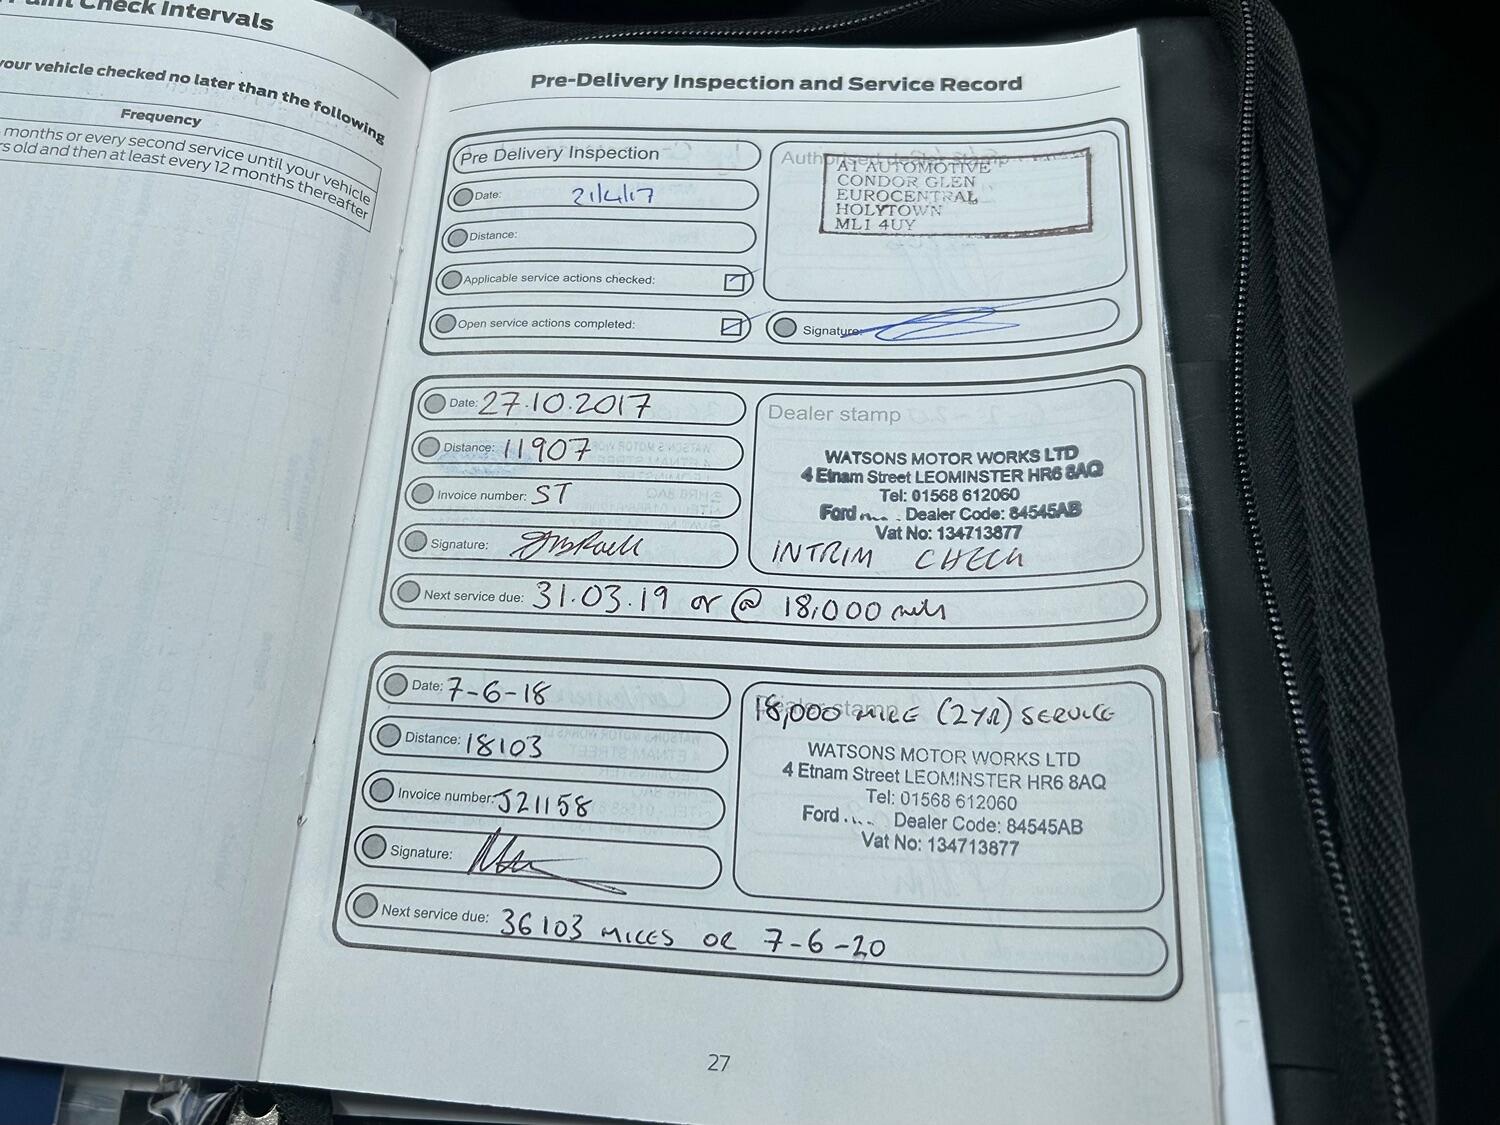 Paint Check Intervals
your vehicle checked no later than the following
Frequency
months or every second service until your vehicle
rs old and then at least every 12 months thereafter
Pre-Delivery Inspection and Service Record
Pre Delivery Inspection
Date: 21/4/17
Distance:
Applicable service actions checked:
Open service actions completed:
Authorised dealer stamp
A1 AUTOMOTIVE
CONDOR GLEN
EUROCENTRAL
HOLYTOWN
ML1 4UY
Signature:
Date: 27.10.2017
Distance: 11907
Invoice number: ST
Signature:
Dealer stamp
WATSONS MOTOR WORKS LTD
4 Etnam Street LEOMINSTER HR6 8AQ
Tel: 01568 612060
Ford Dealer Code: 84545AB
Vat No: 134713877
INTRIM CHECK
Next service due: 31.03.19 or @ 18,000 mls
Date: 7-6-18
Distance: 18103
Invoice number: J21158
Signature:
Dealer stamp
18,000 MILE (2YR) SERVICE
WATSONS MOTOR WORKS LTD
4 Etnam Street LEOMINSTER HR6 8AQ
Tel: 01568 612060
Ford .... Dealer Code: 84545AB
Vat No: 134713877
Next service due: 36103 MILES OR 7-6-20
27